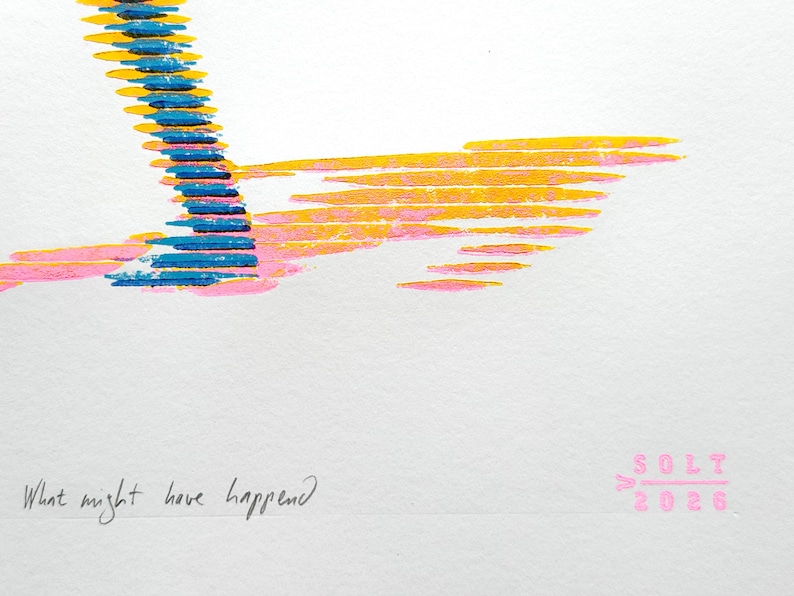 What might have happend
SOLT
2026